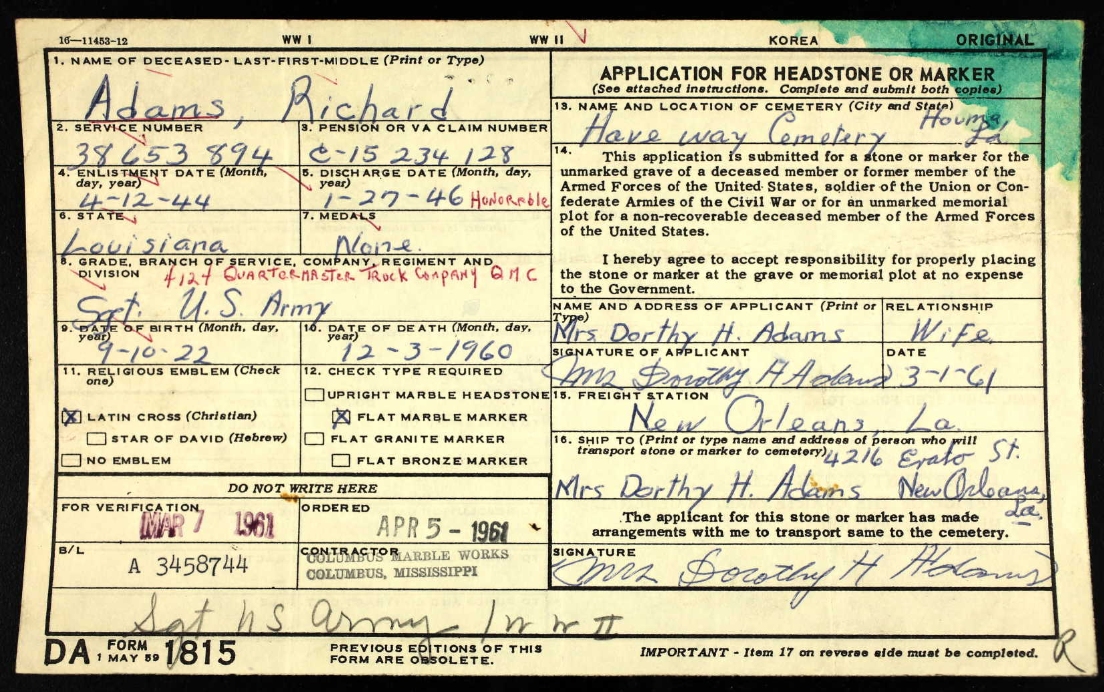 16—11453-12 WW I WW II KOREA ORIGINAL
1. NAME OF DECEASED-LAST-FIRST-MIDDLE (Print or Type)
Adams, Richard
2. SERVICE NUMBER
38 653 894
3. PENSION OR VA CLAIM NUMBER
C-15 234 128
4. ENLISTMENT DATE (Month, day, year)
4-12-44
5. DISCHARGE DATE (Month, day, year)
1-27-46 Honorable
6. STATE
Louisiana
7. MEDALS
None.
8. GRADE, BRANCH OF SERVICE, COMPANY, REGIMENT AND
DIVISION 4124 QUARTERMASTER TRUCK COMPANY QMC
Sgt. U.S. Army
9. DATE OF BIRTH (Month, day, year)
9-10-22
10. DATE OF DEATH (Month, day, year)
12-3-1960
11. RELIGIOUS EMBLEM (Check one)
LATIN CROSS (Christian)
STAR OF DAVID (Hebrew)
NO EMBLEM
12. CHECK TYPE REQUIRED
UPRIGHT MARBLE HEADSTONE
FLAT MARBLE MARKER
FLAT GRANITE MARKER
FLAT BRONZE MARKER
DO NOT WRITE HERE
FOR VERIFICATION
MAR 7 1961
ORDERED
APR 5 - 1961
B/L
A 3458744
CONTRACTOR
COLUMBUS MARBLE WORKS
COLUMBUS, MISSISSIPPI
APPLICATION FOR HEADSTONE OR MARKER
(See attached instructions. Complete and submit both copies)
13. NAME AND LOCATION OF CEMETERY (City and State)
Have way Cemetery Houma, La
14. This application is submitted for a stone or marker for the
unmarked grave of a deceased member or former member of the
Armed Forces of the United States, soldier of the Union or Con-
federate Armies of the Civil War or for an unmarked memorial
plot for a non-recoverable deceased member of the Armed Forces
of the United States.
I hereby agree to accept responsibility for properly placing
the stone or marker at the grave or memorial plot at no expense
to the Government.
NAME AND ADDRESS OF APPLICANT (Print or Type)
Mrs Dorthy H. Adams
RELATIONSHIP
Wife
SIGNATURE OF APPLICANT
Mrs Dorothy H Adams
DATE
3-1-61
15. FREIGHT STATION
New Orleans, La.
16. SHIP TO (Print or type name and address of person who will
transport stone or marker to cemetery) 4216 Erato St.
Mrs Dorthy H. Adams New Orleans, La.
The applicant for this stone or marker has made
arrangements with me to transport same to the cemetery.
SIGNATURE
Mrs Dorothy H Adams
Sgt US Army WW II
DA FORM 1 MAY 59 1815
PREVIOUS EDITIONS OF THIS
FORM ARE OBSOLETE.
IMPORTANT - Item 17 on reverse side must be completed.
R